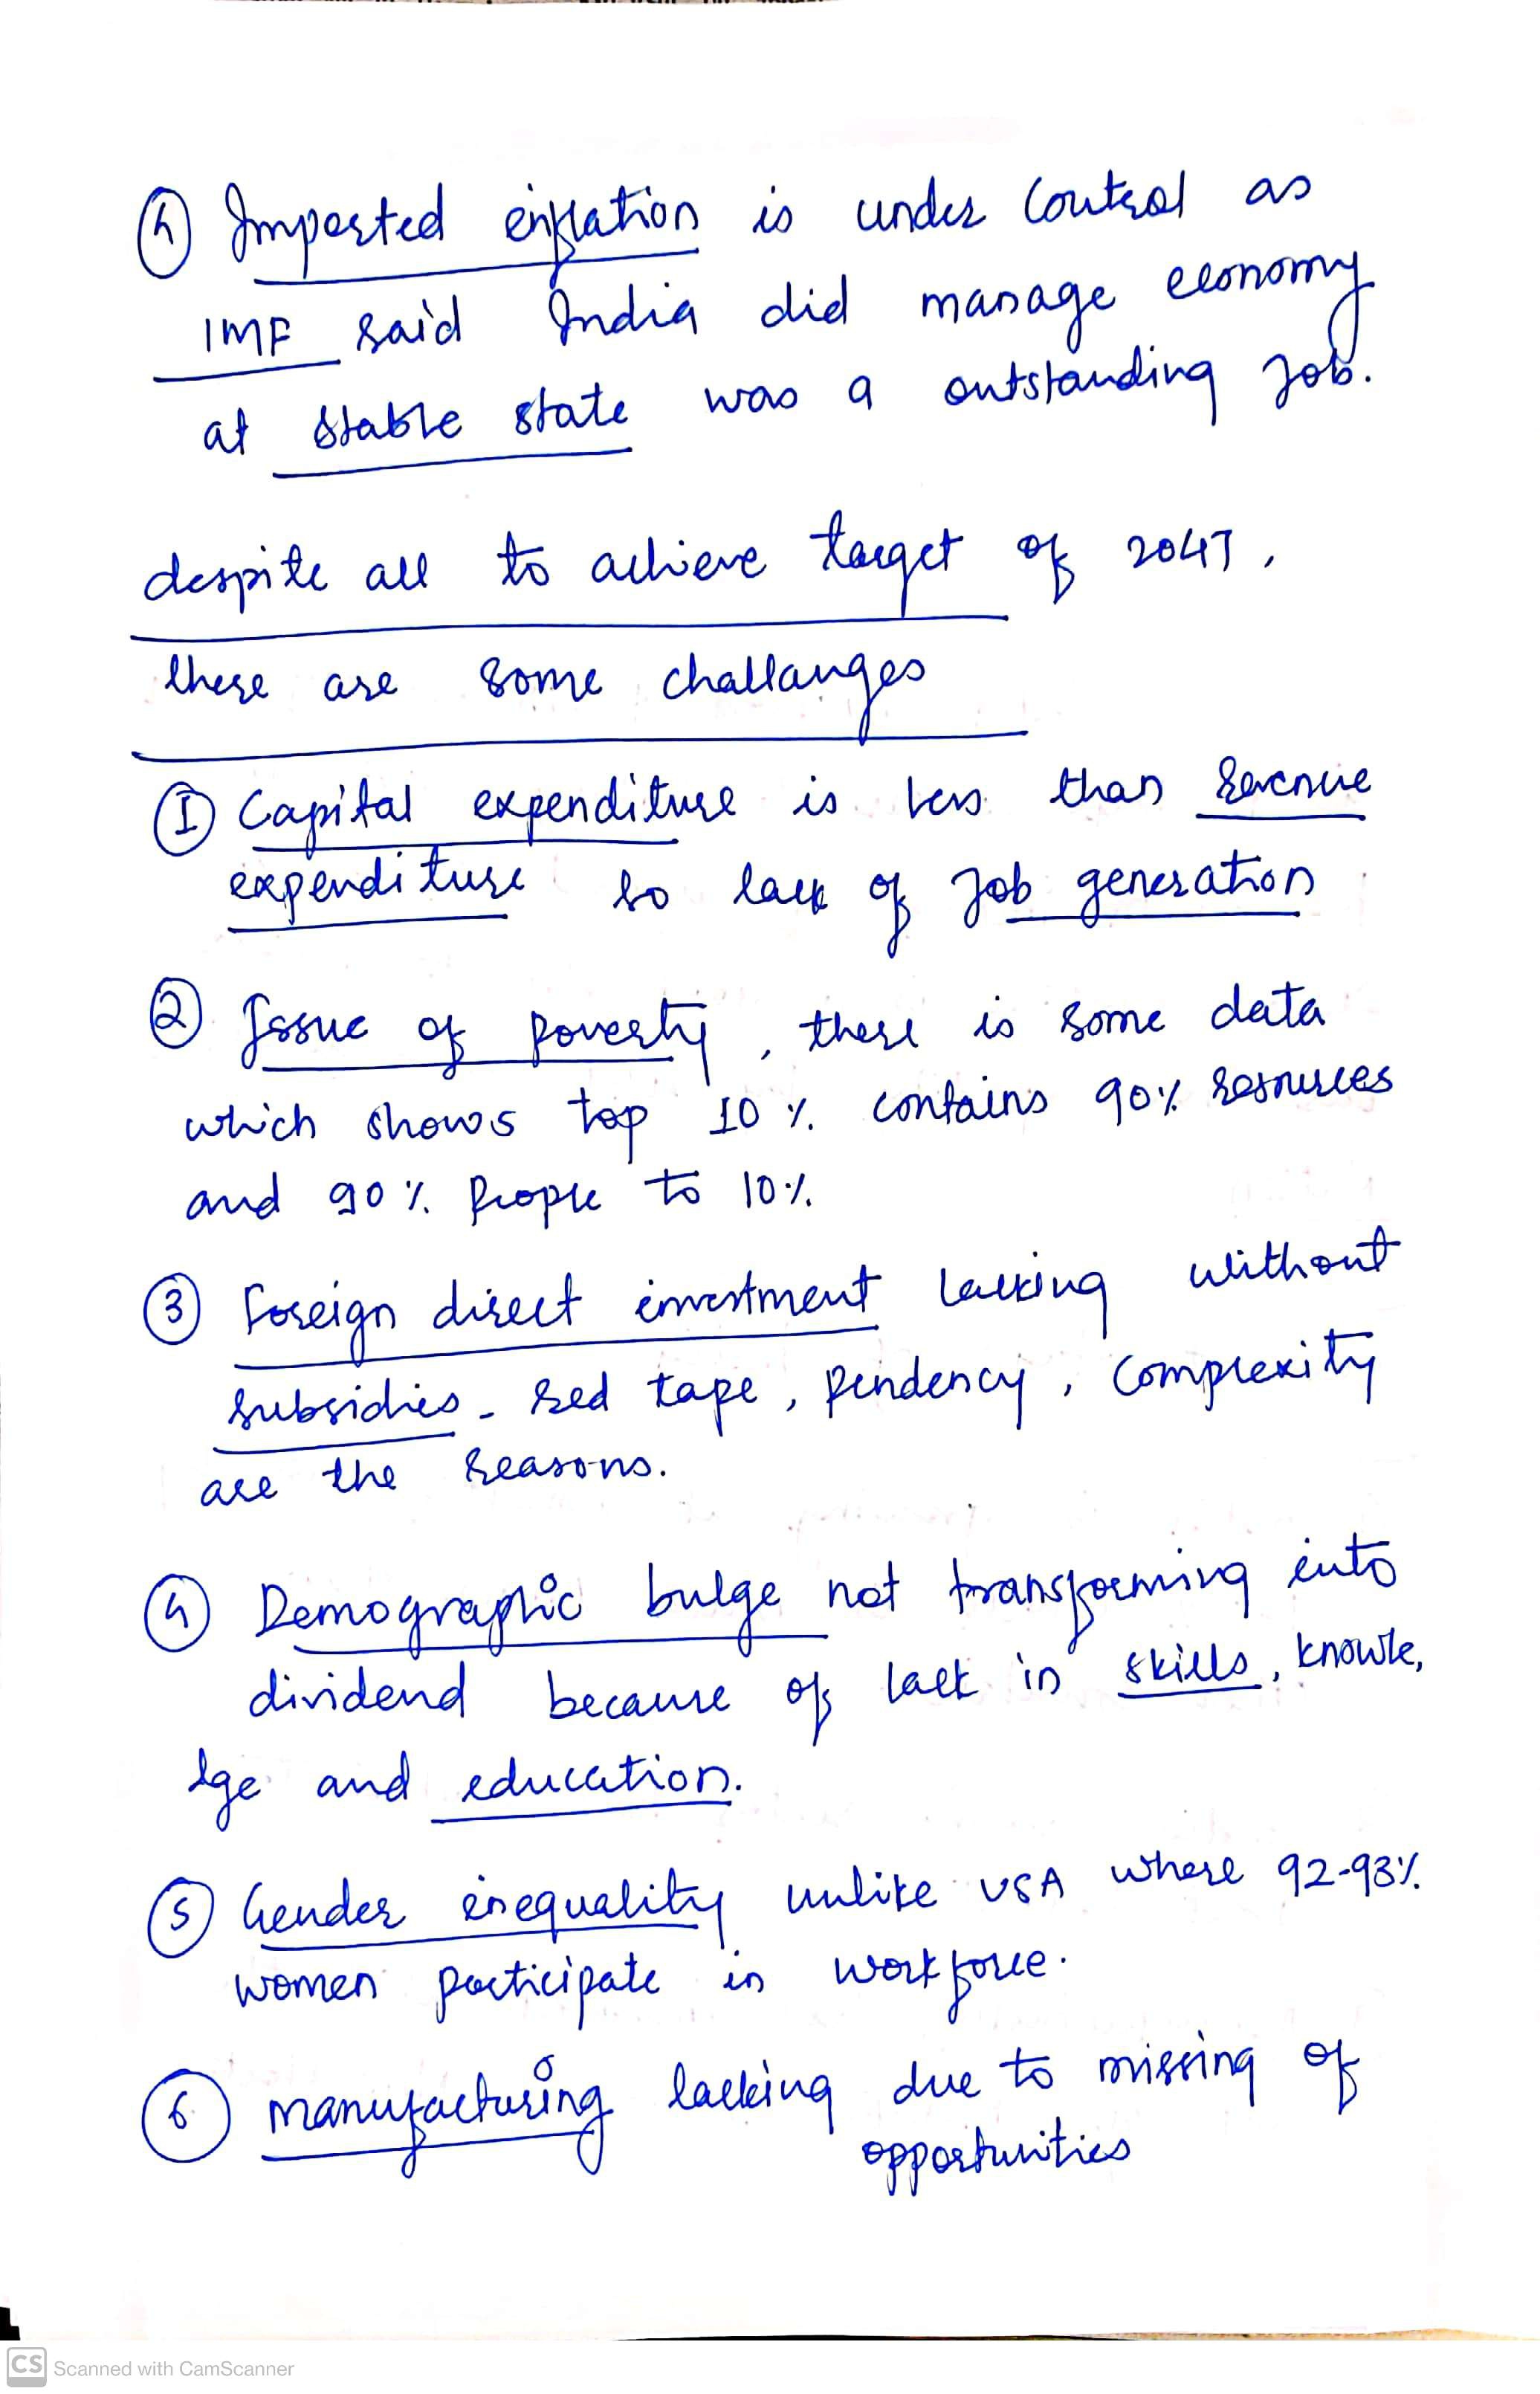 ④ Imported inflation is under control as
IMF said India did manage economy
at stable state was a outstanding job.
despite all to achieve target of 2047,
there are some challanges
① Capital expenditure is less than revenue
expenditure so lack of job generation
② Issue of poverty, there is some data
which shows top 10% contains 90% resources
and 90% people to 10%
③ Foreign direct investment lacking without
subsidies - red tape, pendency, complexity
are the reasons.
④ Demographic bulge not transforming into
dividend because of lack in skills, knowle,
dge and education.
⑤ Gender inequality unlike USA where 92-93%
women participate in workforce.
⑥ manufacturing lacking due to missing of
opportunities
CS Scanned with CamScanner